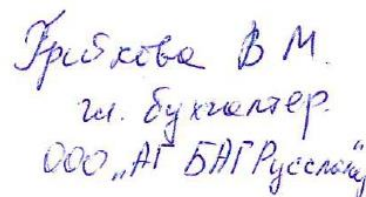 Грибкова В М.
гл. бухгалтер.
ООО „АГ БАГРуссланд"